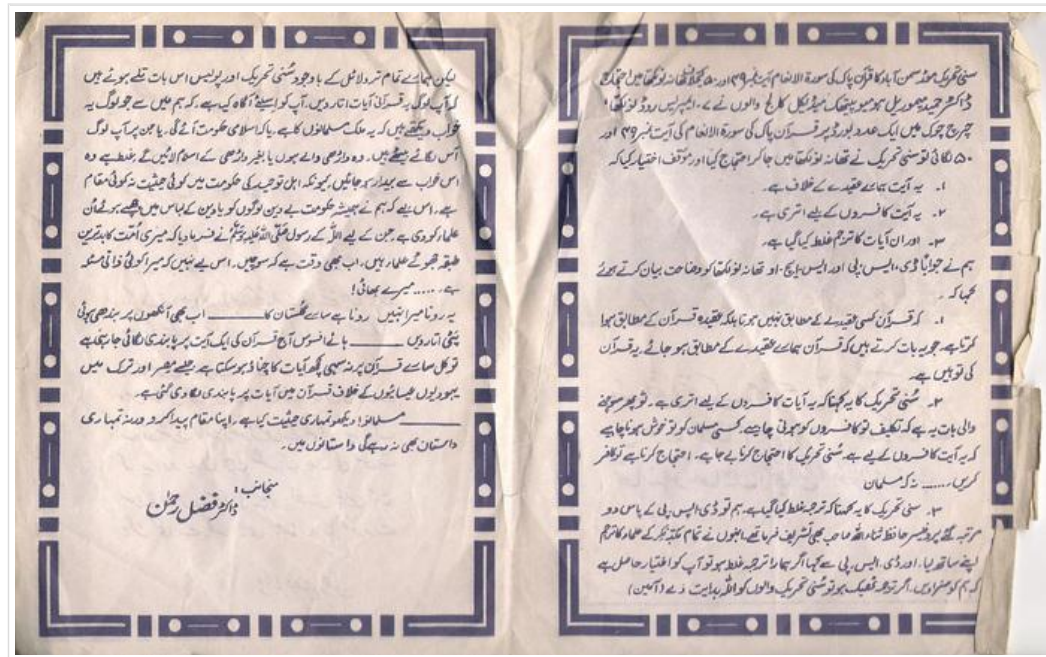 سنی تحریک موڑ سمن آباد کا قرآن پاک کی سورۃ الانعام آیت نمبر ۴۹ اور ۵۰ کیخلاف تھانہ نولکھا میں احتجاج
ڈاکٹر حمید میموریل ہومیوپیتھک میڈیکل کالج والوں نے ۷۔ ایمپریس روڈ نولکھا،
چرچ چوک میں ایک عدد بورڈ پر قرآن پاک کی سورۃ الانعام کی آیت نمبر ۴۹ اور
۵۰ لگائی تو سنی تحریک نے تھانہ نولکھا میں جا کر احتجاج کیا اور مؤقف اختیار کیا کہ
۱۔ یہ آیت ہمارے عقیدے کے خلاف ہے۔
۲۔ یہ آیت کافروں کے لیے اتری ہے۔
۳۔ اور ان آیات کا ترجمہ غلط کیا گیا ہے۔
ہم نے جواباً ڈی، ایس، پی اور ایس، ایچ، او تھانہ نولکھا کو وضاحت بیان کرتے ہوئے
کہا کہ۔
۱۔ کہ قرآن کسی عقیدے کے مطابق نہیں ہوتا بلکہ عقیدہ قرآن کے مطابق ہوا
کرتا ہے، جو یہ بات کرتے ہیں کہ قرآن ہمارے عقیدے کے مطابق ہو جائے۔ یہ قرآن
کی توہین ہے۔
۲۔ سُنی تحریک کا یہ کہنا کہ یہ آیات کافروں کے لیے اتری ہے۔ تو پھر سوچنے
والی بات یہ ہے کہ تکلیف تو کافروں کو ہونی چاہیے۔ کسی مسلمان کو تو خوش ہونا چاہیے
کہ یہ آیت کافروں کے لیے ہے۔ سُنی تحریک کا احتجاج کرنا بے جا ہے۔ احتجاج کرنا ہے تو کافر
کریں۔...... نہ کہ مسلمان
۳۔ سنی تحریک کا یہ کہنا کہ ترجمہ غلط کیا گیا ہے۔ ہم تو ڈی، ایس، پی کے پاس دو
مرتبہ گئے پروفیسر حافظ ثناء اللہ صاحب بھی تشریف فرما تھے، انہوں نے تمام مکتبہ فکر کے علماء کا ترجمہ
اپنے ساتھ لیا۔ اور ڈی، ایس، پی سے کہا اگر ہمارا ترجمہ غلط ہو تو آپ کو اختیار حاصل ہے
کہ ہم کو سزا دیں۔ اگر ترجمہ ٹھیک ہو تو سُنی تحریک والوں کو اللہ ہدایت دے (آمین)
لیکن ہمارے تمام تر دلائل کے باوجود سُنی تحریک اور پولیس اس بات پر تلے ہوئے ہیں
کہ آپ لوگ یہ قرآنی آیات اتار دیں، آپ کو اسلئے آگاہ کیا ہے۔ کہ ہم میں سے جو لوگ یہ
خواب دیکھتے ہیں کہ یہ ملک مسلمانوں کا ہے۔ یا کہ اسلامی حکومت آئے گی۔ یا جن پر آپ لوگ
آس لگائے بیٹھے ہیں۔ وہ داڑھی والے ہوں یا بغیر داڑھی کے اسلام لائیں گے۔ غلط ہے وہ
اس خواب سے بیدار ہو جائیں۔ کیونکہ اہل توحید کی حکومت میں کوئی حیثیت نہ کوئی مقام
ہے۔ اس لیے کہ ہم نے ہمیشہ حکومت بے دین لوگوں کو یا دین کے لباس میں چھپے ہوئے اُن
علماء کو دی ہے جن کے لیے اللہ کے رسول صَلَّی اللہ عَلَیْہِ وَسَلَّم نے فرمادیا کہ میری اُمت کا بدترین
طبقہ جھوٹے علماء ہیں۔ اب بھی وقت ہے کہ سوچیں۔ اس لیے نہیں کہ میرا کوئی ذاتی مسئلہ
ہے۔ ..... میرے بھائی!
یہ رونا میرا نہیں رونا ہے سارے گلستان کا ــــــ اب بھی آنکھوں پر بندھی ہوئی
پٹی اتار دیں ــــــ ہائے افسوس آج قرآن کی ایک آیت پر پابندی لگائی جا رہی ہے
تو کل سارے قرآن پر نہ سہی کچھ آیات کا چناؤ ہو سکتا ہے جیسے مصر اور ترک میں
یہودیوں عیسائیوں کے خلاف قرآن میں آیات پر پابندی لگا دی گئی ہے۔
ــــــ مسلمانو! دیکھو تمہاری حیثیت کیا ہے۔ اپنا مقام پیدا کرو ورنہ تمہاری
داستان بھی نہ رہے گی داستانوں میں۔
منجانب:
ڈاکٹر فضل رحمٰن